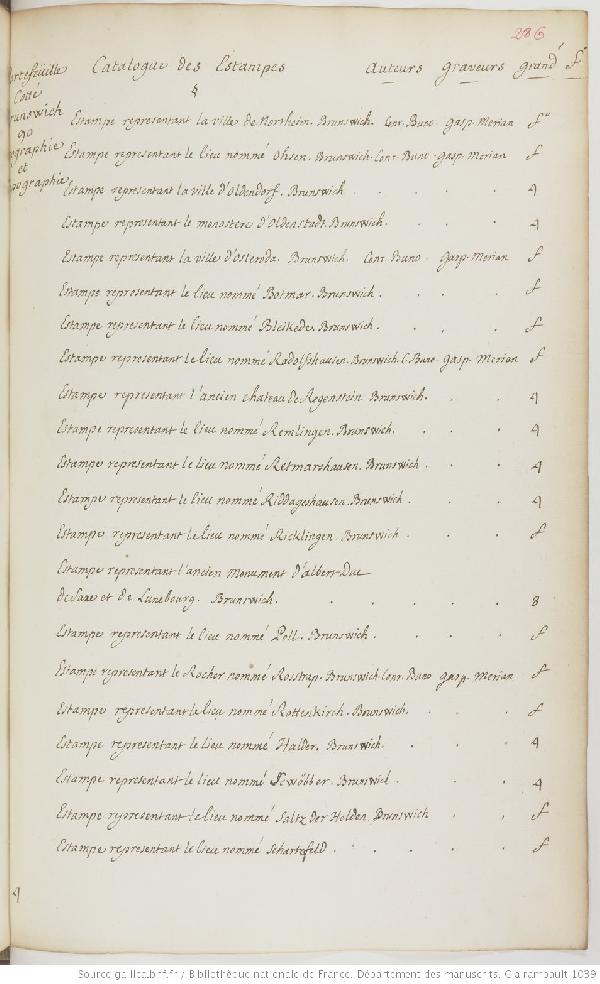 286
Portefeüille Catalogue des Estampes auteurs graveurs grand.r f.o
Cotté
Brunswich
90
et
Estampe representant la ville de Northeim. Brunswich. Conr. Buno. gasp. Merian f.o
Estampe representant le lieu nommé Ohsen. Brunswich. Conr. Buno. gasp. Merian f
Estampe representant la ville d'Oldendorf. Brunswich. . . . . 4
Estampe representant le monastere d'Oldenstadt. Brunswich. . . . 4
Estampe representant la ville d'Osteroda. Brunswich. Conr. Buno. gasp. Merian f
Estampe representant le lieu nommé Botmar. Brunswich. . . . f
Estampe representant le lieu nommé Bleikede. Brunswich. . . . f
Estampe representant le lieu nommé Radolfshausen. Brunswich. C. Buno. gasp. Merian f
Estampe representant l'ancien chateau de Regenstein Brunswich. . . 4
Estampe representant le lieu nommé Remlingen. Brunswich. . . . 4
Estampe representant le lieu nommé Retmarshausen. Brunswich . . . 4
Estampe representant le lieu nommé Riddageshausen. Brunswich . . . 4
Estampe representant le lieu nommé Ricklingen. Brunswich . . . f
Estampe representant l'ancien monument d'albert Duc
de Saxe et de Lunebourg. Brunswich. . . . . 8
Estampe representant le lieu nommé Poll. Brunswich. . . . f
Estampe representant le Rocher nommé Rosstrap. Brunswich. Conr. Buno gasp. Merian f
Estampe representant le lieu nommé Rottenkirch. Brunswich. . . f
Estampe representant le lieu nommé Halder. Brunswich. . . . 4
Estampe representant le lieu nommé Schwöbber. Brunswich . . . 4
Estampe representant le lieu nommé Saltz der Helden. Brunswich . . f
Estampe representant le lieu nommé Schartzfeld . . . . . f
Source gallica.bnf.fr / Bibliothèque nationale de France. Département des manuscrits. Clairambault 1039